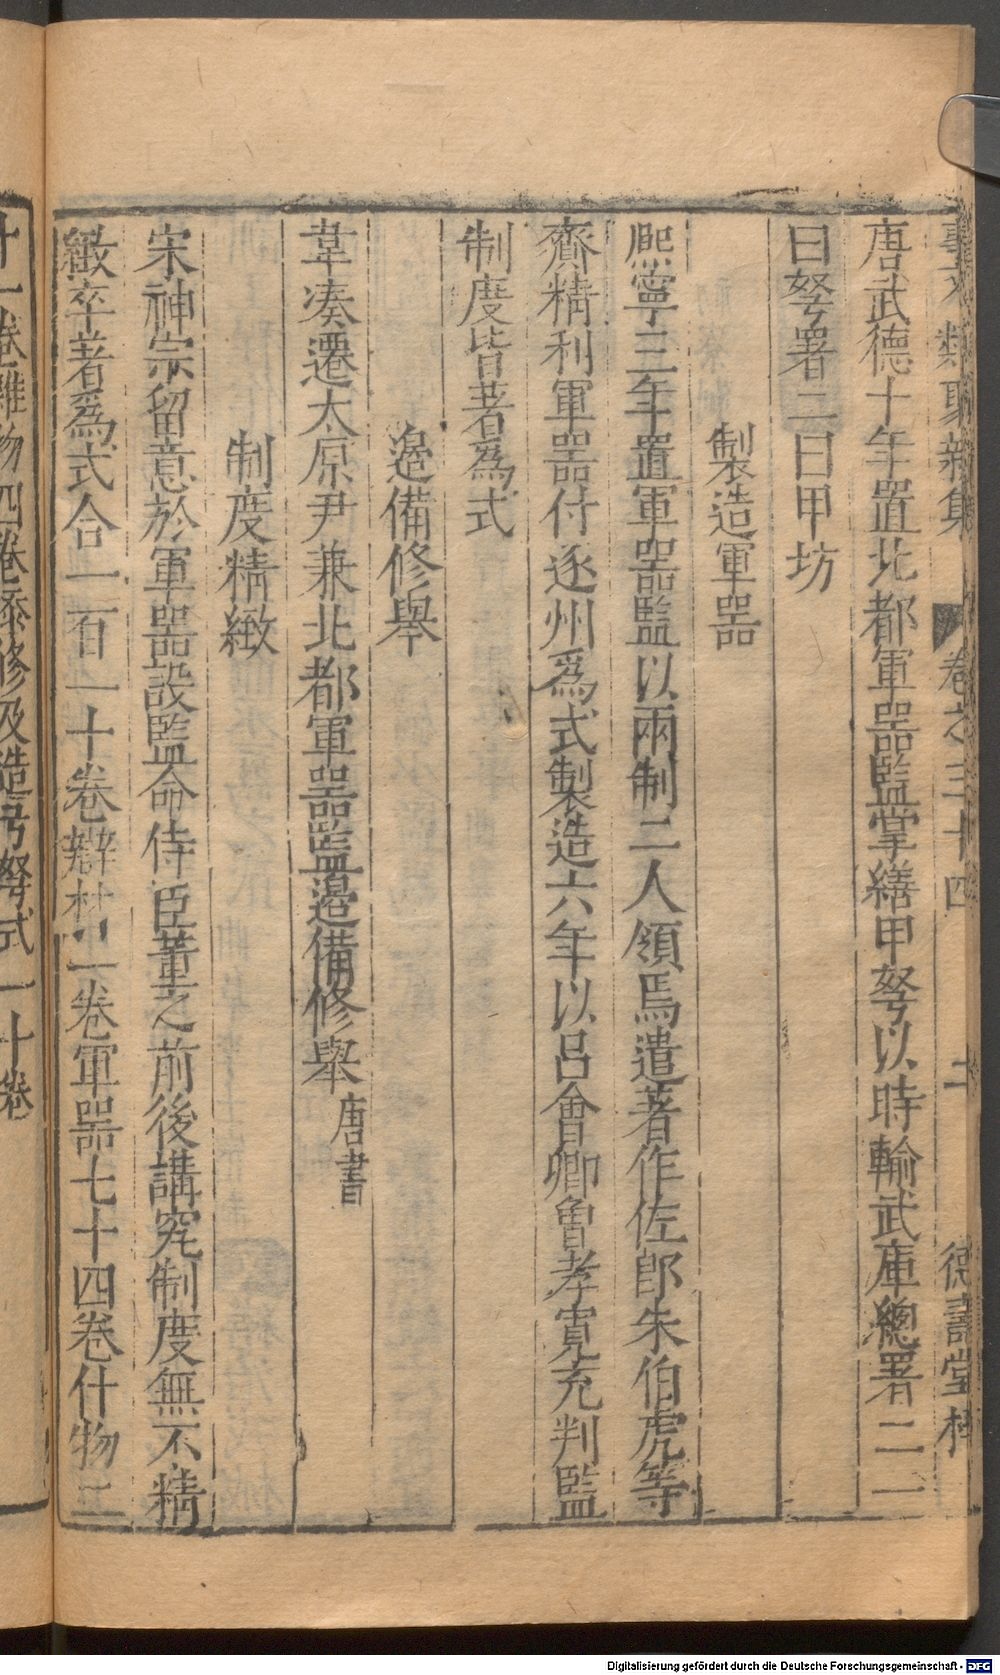 唐武德十年置北都軍器監掌繕甲弩以時輸武庫總署二一
曰弩署二曰甲坊
製造軍器
熈寧三年置軍器監以兩制二人領焉遣著作佐郎朱伯虎等
齎精利軍器付逐州爲式製造六年以呂會卿曾孝寛充判監
制度皆著爲式
邉備修舉
韋湊遷太原尹兼北都軍器監邉備修舉唐書
制度精緻
宋神宗留意於軍器設監命侍臣董之前後講究制度無不精
緻卒著爲式合一百一十卷辯材一卷軍器七十四卷什物二
十一卷雜物四卷添修及造弓弩式一十卷
類聚新集 卷之三十四 二 德壽堂梓
Digitalisierung gefördert durch die Deutsche Forschungsgemeinschaft - DFG